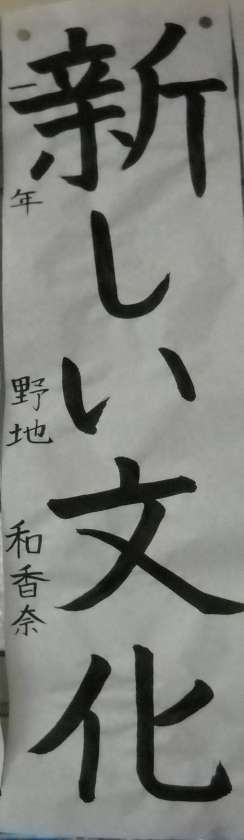 新しい文化
一年 野地 和香奈